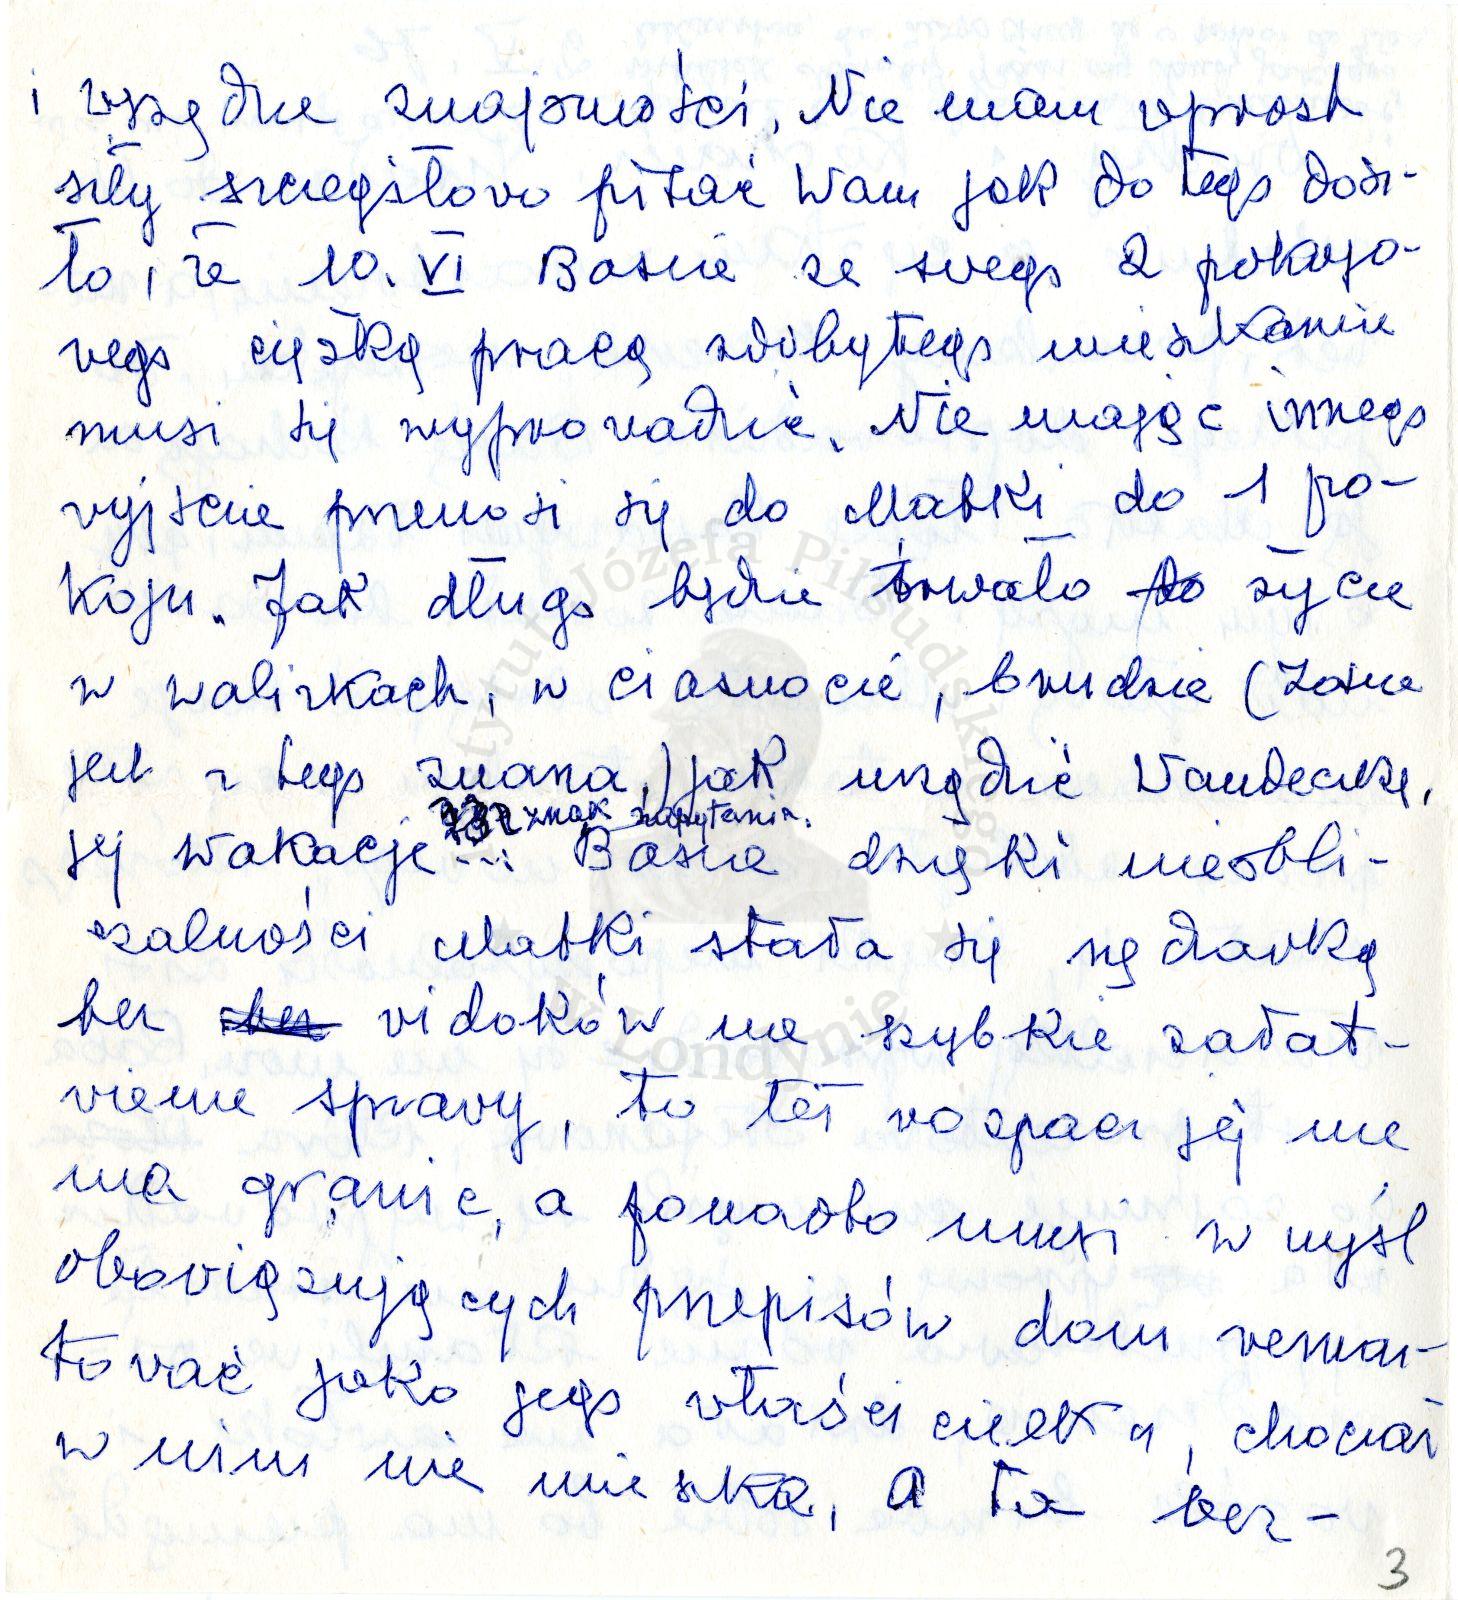 i wszędzie znajomości. Nie mam wprost
siły szczegółowo pisać Wam jak do tego doszi-
ło, że 10. VI Basia ze swego 2 pokojo-
wego ciężką pracą zdobytego mieszkania
musi się wyprowadzić. Nie mając innego
wyjścia przenosi się do Matki do 1 po-
koju. Jak długo będzie trwało to życie
w walizkach, w ciasnocie, brudzie (Zosia
jest z tego znana,) jak urządzić Wandeczkę,
jej wakacje ??? znak zapytania.
Basia dzięki nieobli-
czalności Matki stała się nędzarką
bez bez widoków na szybkie załat-
wienie sprawy, to też rozpacz jej nie
ma granic, a ponadto musi w myśl
obowiązujących przepisów dom remon-
tować jako jego właścicielka, chociaż
w nim nie mieszka, a ta bez-
3
Instytut Józefa Piłsudskiego
w Londynie